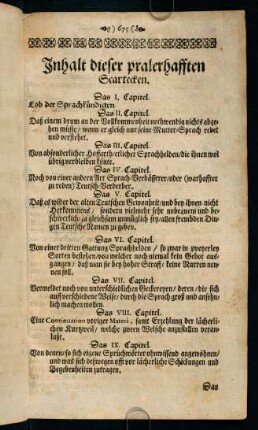 ) 675 (
Inhalt dieser pralerhafften
Scartecken.
Das I, Capitel.
Lob der Sprachkündigen.
Das II. Capitel.
Daß einem drum an der Vollkommenheit nothwendig nichts abge-
hen müsse / wann er gleich nur seine Mutter-Sprach redet
und verstehet.
Das III. Capitel.
Von absonderlicher Hoffart etlicher Sprachhelden / die ihnen wol
übrig verbleiben könte.
Das IV. Capitel.
Noch von einer andern Art Sprach-Verbässerer / oder (warhaffter
zu reden) Teutsch-Verderber.
Das V. Capitel.
Daß es wider der alten Teutschen Gewonheit / und bey ihnen nicht
Herkommens / sondern vielmehr sehr unbequem und be-
schwerlich / ja gleichsam unmüglich sey / allen fremden Din-
gen Teutsche Namen zu geben.
Das VI. Capitel.
Von einer dritten Gattung Sprachhelden / so zwar in zweyerley
Sorten bestehen / von welcher noch niemal kein Gebot auß-
gangen / daß man sie bey hoher Straff / keine Narren nen-
nen soll.
Das VII. Capitel.
Vermeldet noch von unterschiedlichen Geckereyen / deren / die sich
auff verschiedene Weise / durch die Sprach groß und ansehn-
lich machen wollen.
Das VIII. Capitel.
Eine Continuation voriger Materi, samt Erzehlung der lächerli-
chen Kurtzweil / welche zween Welsche anzustellen veran-
last.
Das IX. Capitel.
Von denen / so sich eigene Sprichwörter ohnwissend angewöhnen /
und was sich deßwegen offt vor lächerliche Schätzungen und
Begebenheiten zutragen.
Das